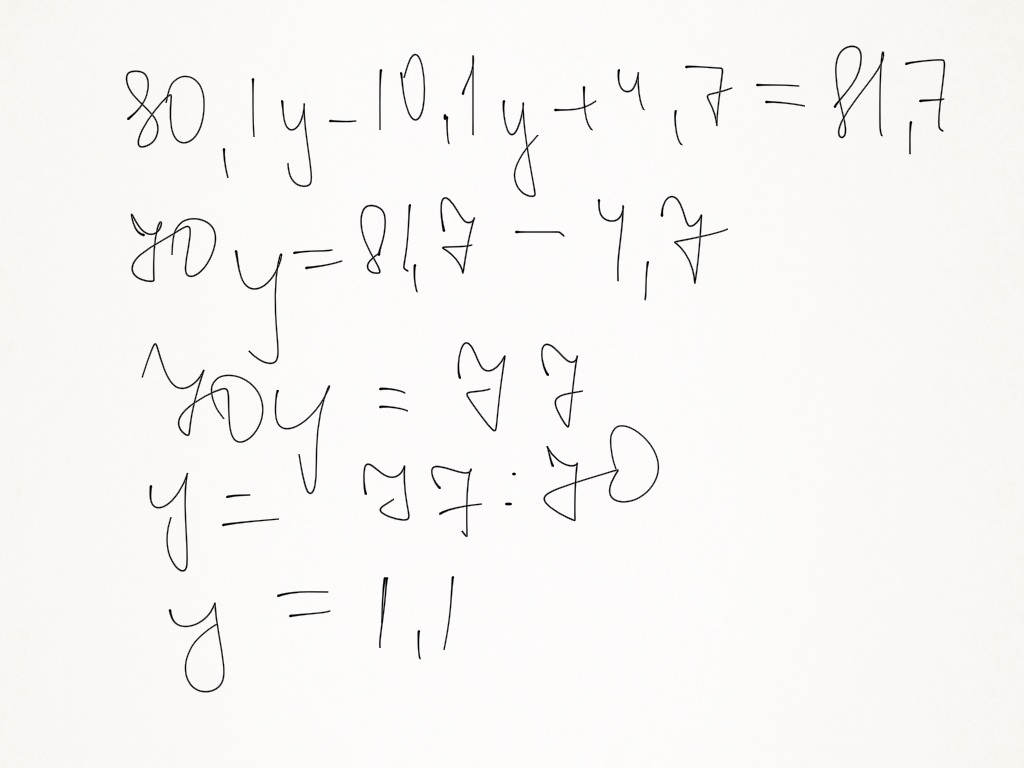 80,1y-10,1y+4,7=81,7
70y=81,7-4,7
70y=77
y=77:70
y=1,1